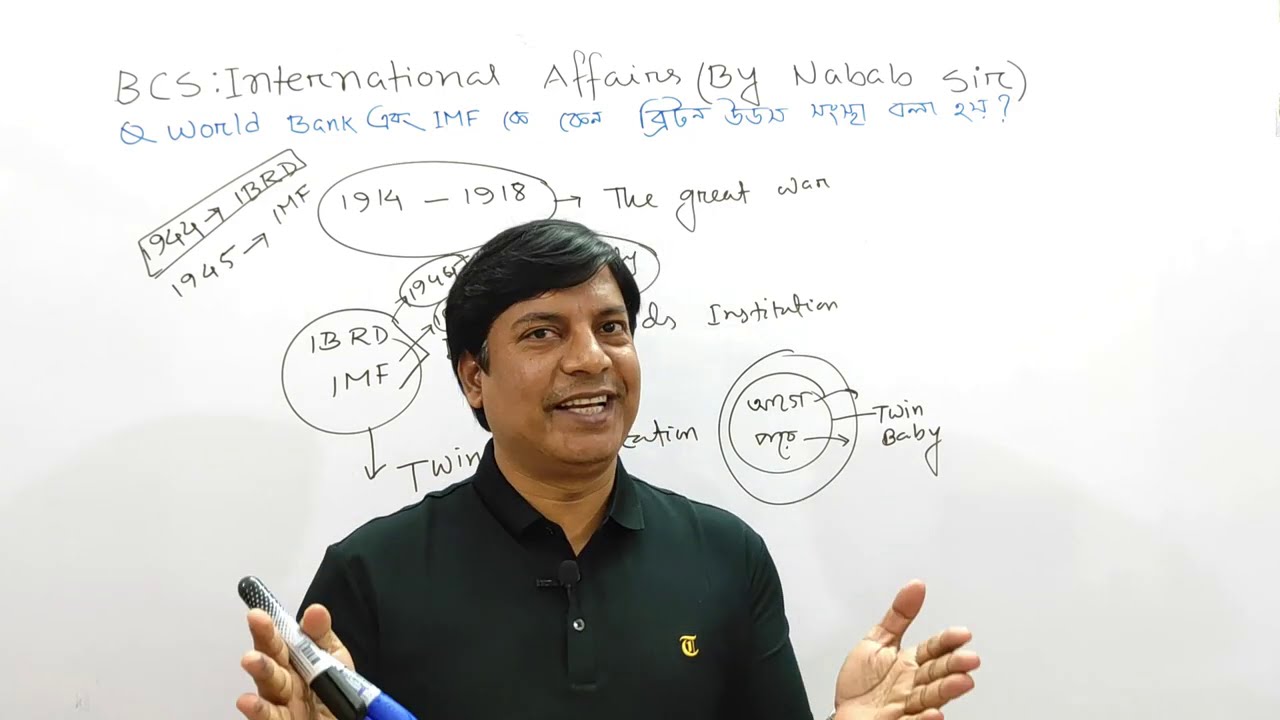 BCS: International Affairs (By Nabab Sir)
Q World Bank এবং IMF কে কেন ব্রিটন উডস সংস্থা বলা হয়?
1944 → IBRD
1945 → IMF
1914 – 1918 → The great war
IBRD
IMF
Institution
Twin
আগে
পরে
Twin
Baby